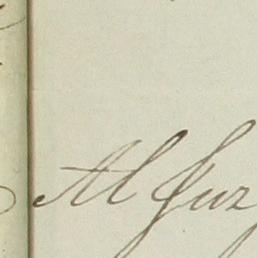 Al Juz